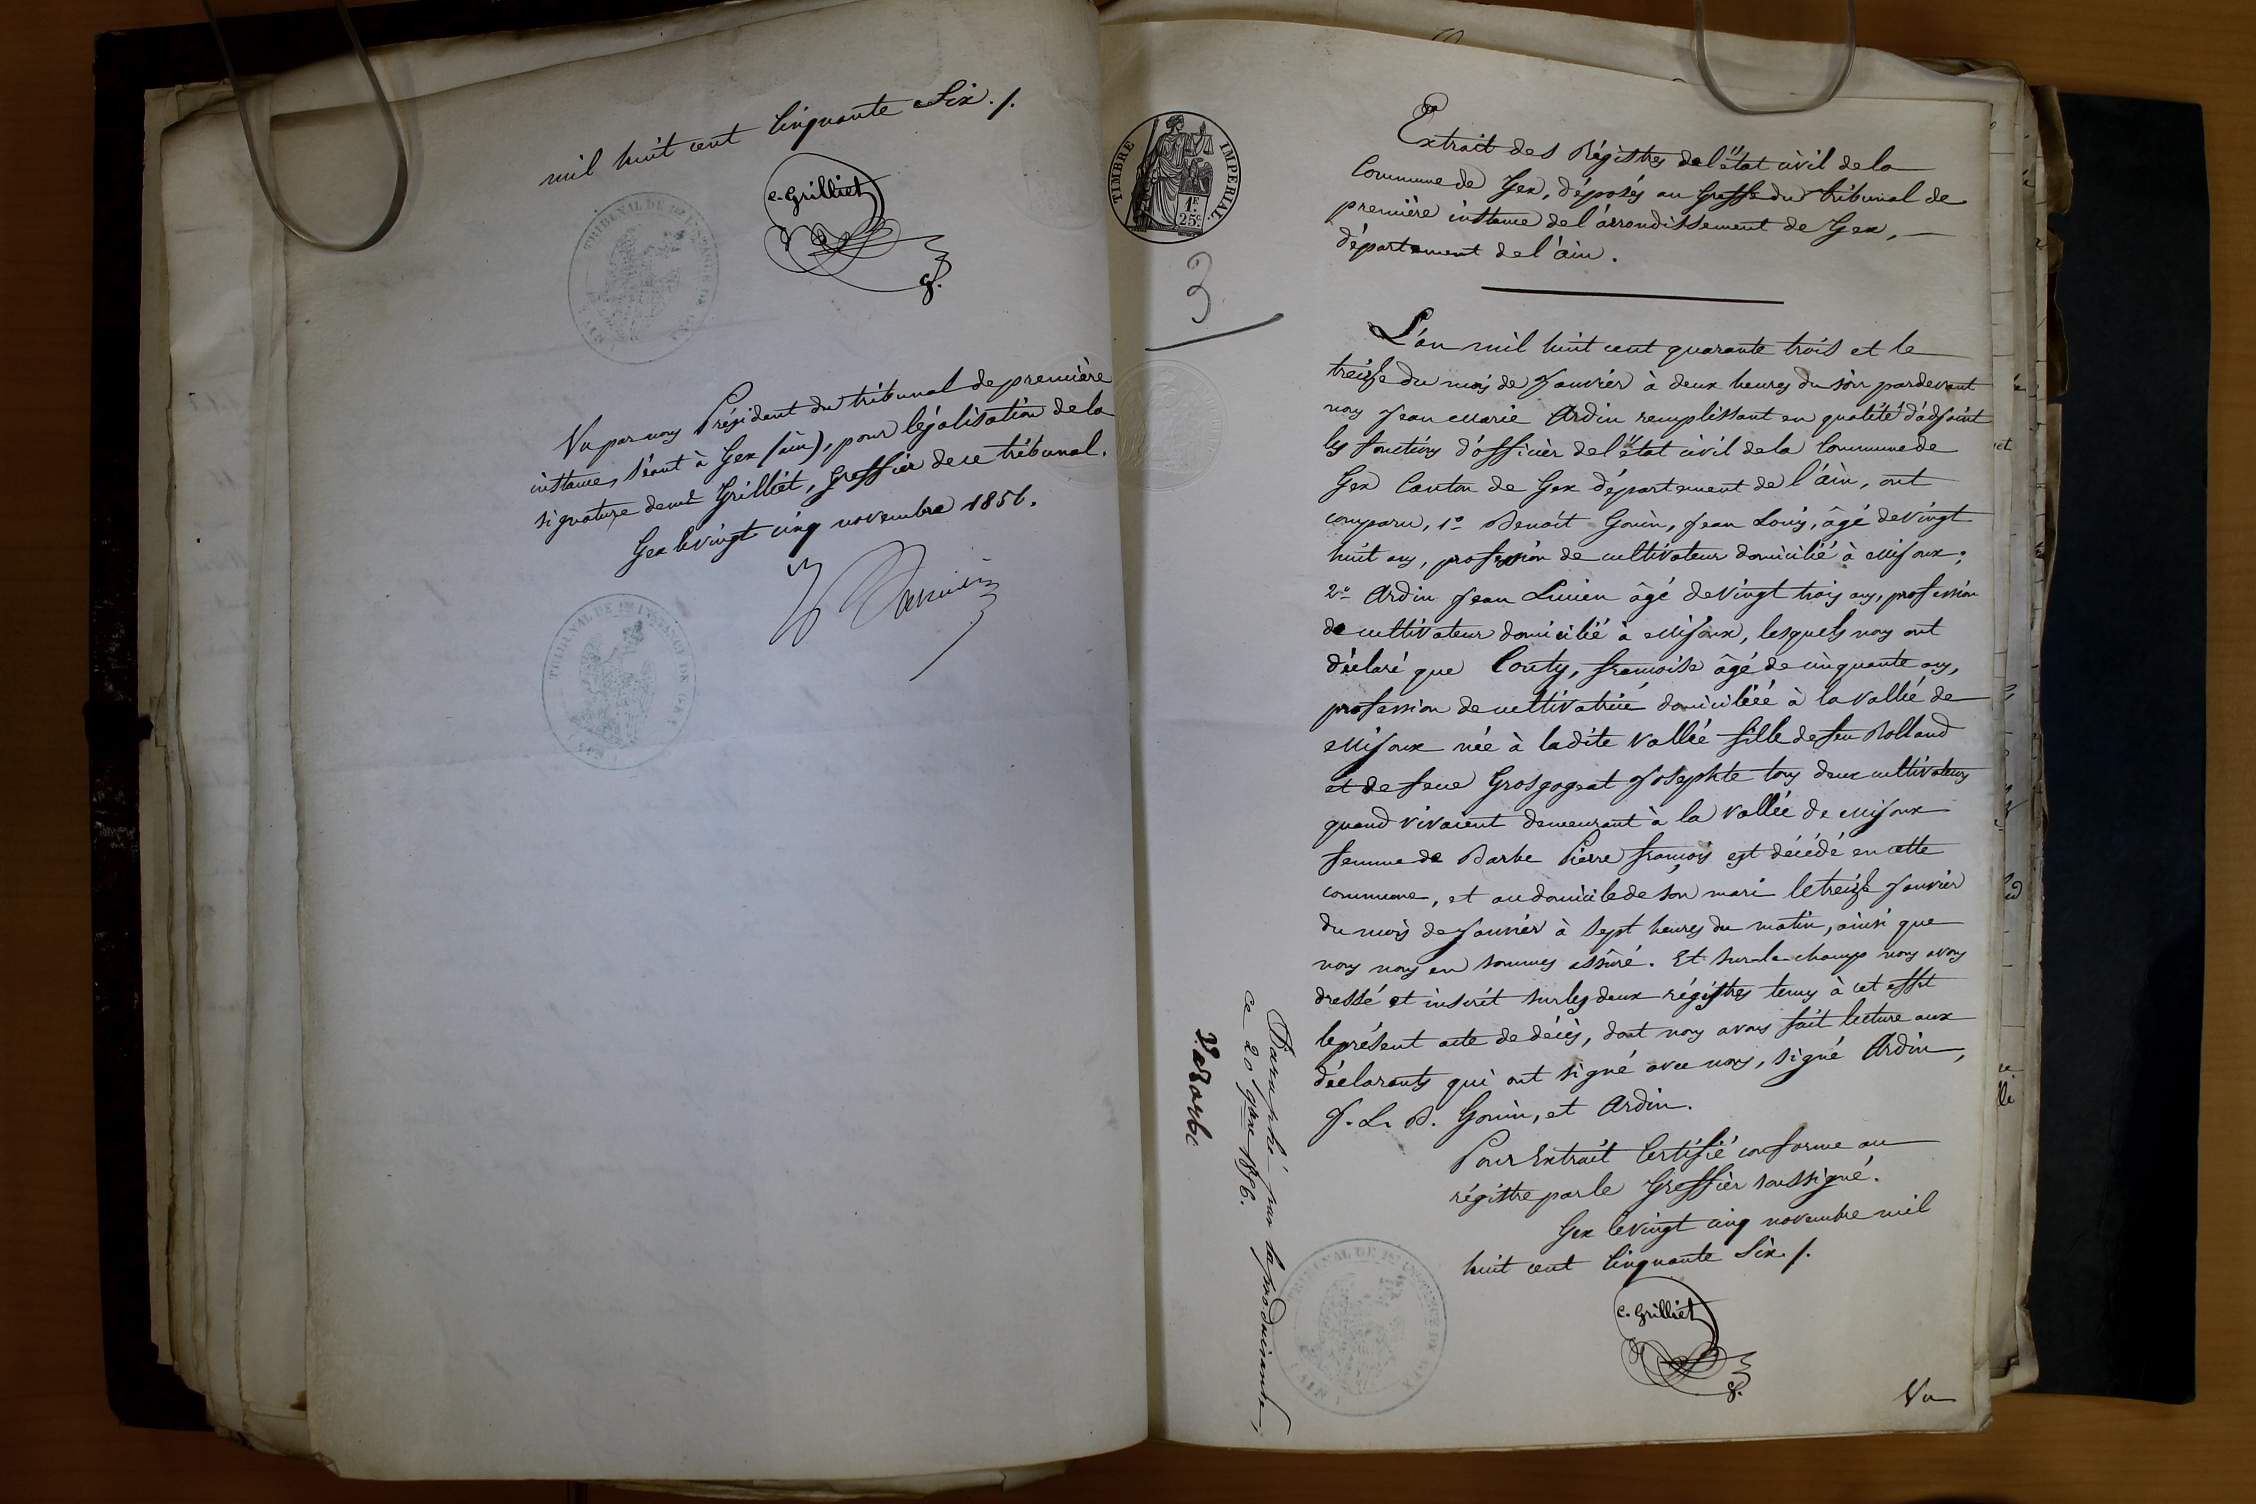 mil huit cent Cinquante Six ./.
c. Grilliet
g.
TRIBUNAL DE 1RE INSTANCE DE GEX
(AIN)
Vu par nous Président du tribunal de première
instance, séant à Gex (ain), pour légalisation de la
signature de Mr Grilliet, Greffier de ce tribunal.
Gex le vingt cinq novembre 1856.
TRIBUNAL DE 1RE INSTANCE DE GEX
(AIN)
TIMBRE IMPERIAL.
1F.
25c.
3
Extrait des Régistres de l'état civil de la
Commune de Gex, déposés au Greffe du tribunal de
première instance de l'arrondissement de Gex,
département de l'ain.
L'an mil huit cent quarante trois et le
treize du mois de Janvier à deux heures du soir pardevant
nous Jean Marie Ardin remplissant en qualité d'adjoint
les fonctions d'officier de l'état civil de la Commune de
Gex Canton de Gex département de l'ain, ont
comparu, 1º Benoit Gouin, Jean Louis, âgé de vingt
huit ans, profession de cultivateur domicilié à Mijoux;
2º Ardin Jean Lucien âgé de vingt trois ans, profession
de cultivateur domicilié à Mijoux, lesquels nous ont
déclaré que Conty, françoise âgé de cinquante ans,
profession de cultivatrice domiciliée à la vallée de
Mijoux née à ladite vallée fille de feu Rolland
et de feue Grosgogeat Josephte tous deux cultivateurs
quand vivaient demeurant à la vallée de Mijoux
femme de Barbe Pierre françois est décédé en cette
commune, et au domicile de son mari le treize Janvier
du mois de Janvier à sept heures du matin, ainsi que
nous nous en sommes assuré. Et sur-le-champ nous avons
dressé et inscrit sur les deux régistres tenus à cet effet
le présent acte de décès, dont nous avons fait lecture aux
déclarants qui ont signé avec nous, signé Ardin,
J. L. B. Gouin, et Ardin.
Pour Extrait Certifié conforme au
régistre par le Greffier soussigné.
Gex le vingt cinq novembre mil
huit cent Cinquante Six ./.
c. Grilliet
g.
Vu
TRIBUNAL DE 1RE INSTANCE DE GEX
(AIN)
Paraphé par la produisante,
ce 20 9bre 1856.